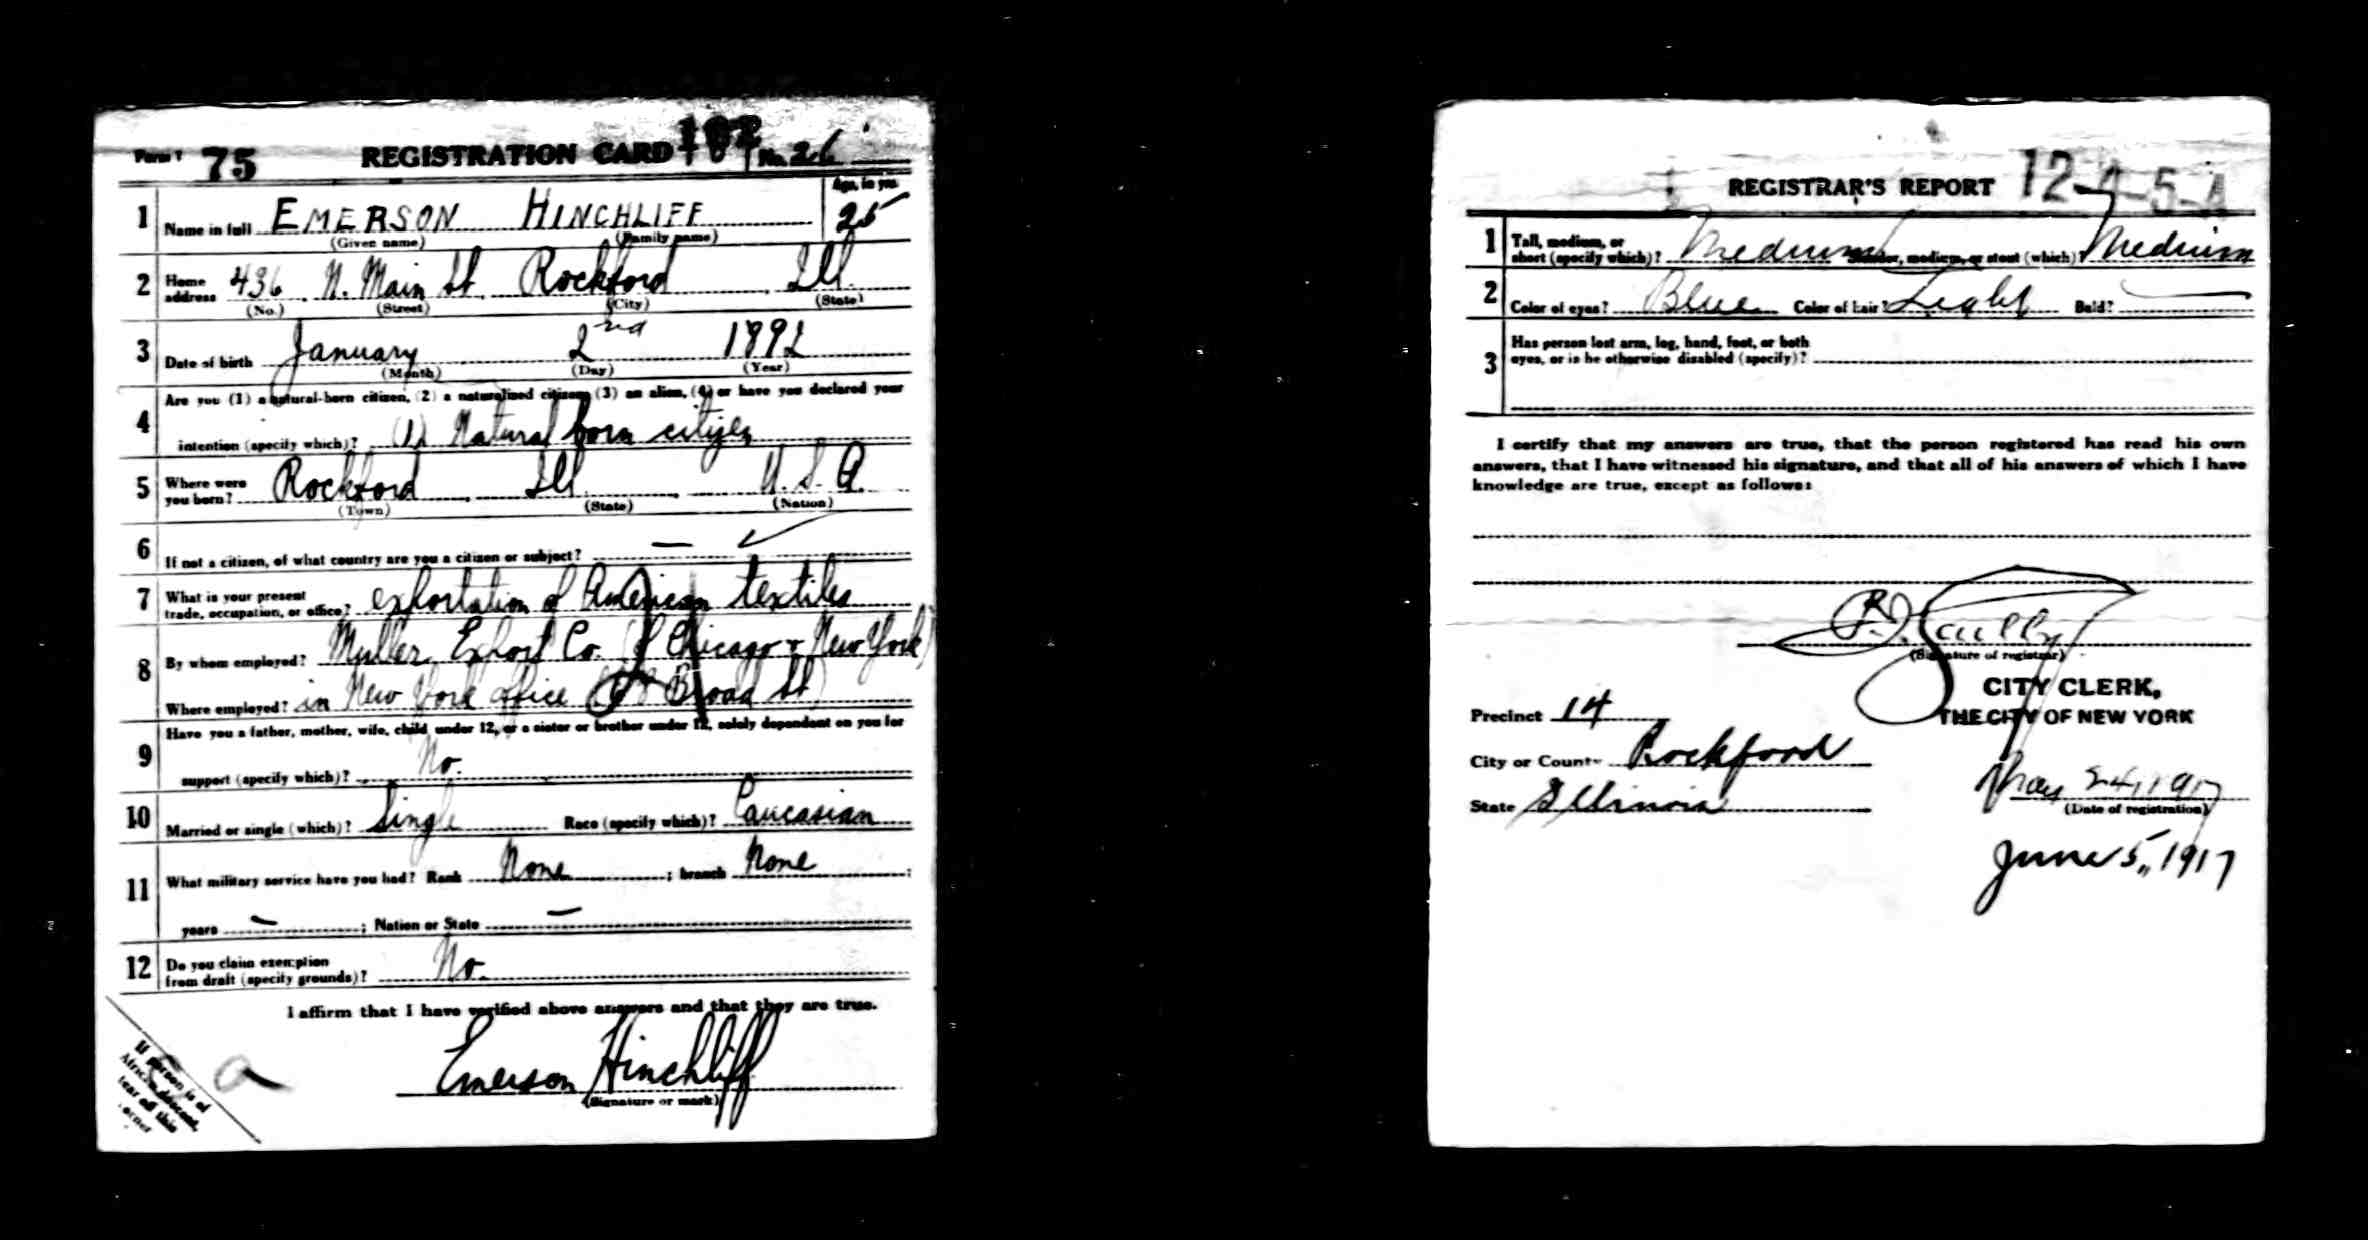 Form 1 75 REGISTRATION CARD No. 26
Age, in yrs.
1 Name in full EMERSON HINCHLIFF 25
(Given name) (Family name)
2 Home address 436 N. Main St. Rockford Ill.
(No.) (Street) (City) (State)
3 Date of birth January 2nd 1892
(Month) (Day) (Year)
4 Are you (1) a natural-born citizen, (2) a naturalized citizen, (3) an alien, (4) or have you declared your
intention (specify which)? (1) Natural born citizen
5 Where were you born? Rockford, Ill., U.S.A.
(Town) (State) (Nation)
6 If not a citizen, of what country are you a citizen or subject? —
7 What is your present trade, occupation, or office? exportation of American textiles
8 By whom employed? Muller Export Co. (of Chicago + New York)
Where employed? in New York office Broad St)
9 Have you a father, mother, wife, child under 12, or a sister or brother under 12, solely dependent on you for
support (specify which)? No.
10 Married or single (which)? Single Race (specify which)? Caucasian
11 What military service have you had? Rank None ; branch None ;
years — ; Nation or State —
12 Do you claim exemption from draft (specify grounds)? No.
I affirm that I have verified above answers and that they are true.
Emerson Hinchliff
(Signature or mark)
If person is of
African descent,
tear off this
corner
REGISTRAR'S REPORT 12-4-5-A
1 Tall, medium, or short (specify which)? Medium Slender, medium, or stout (which)? Medium
2 Color of eyes? Blue Color of hair? Light Bald? —
3 Has person lost arm, leg, hand, foot, or both
eyes, or is he otherwise disabled (specify)?
I certify that my answers are true, that the person registered has read his own
answers, that I have witnessed his signature, and that all of his answers of which I have
knowledge are true, except as follows:
P.J. Scully
(Signature of registrar)
CITY CLERK,
THE CITY OF NEW YORK
Precinct 14
City or County Rockford
State Illinois
May 24, 1917
(Date of registration)
June 5, 1917